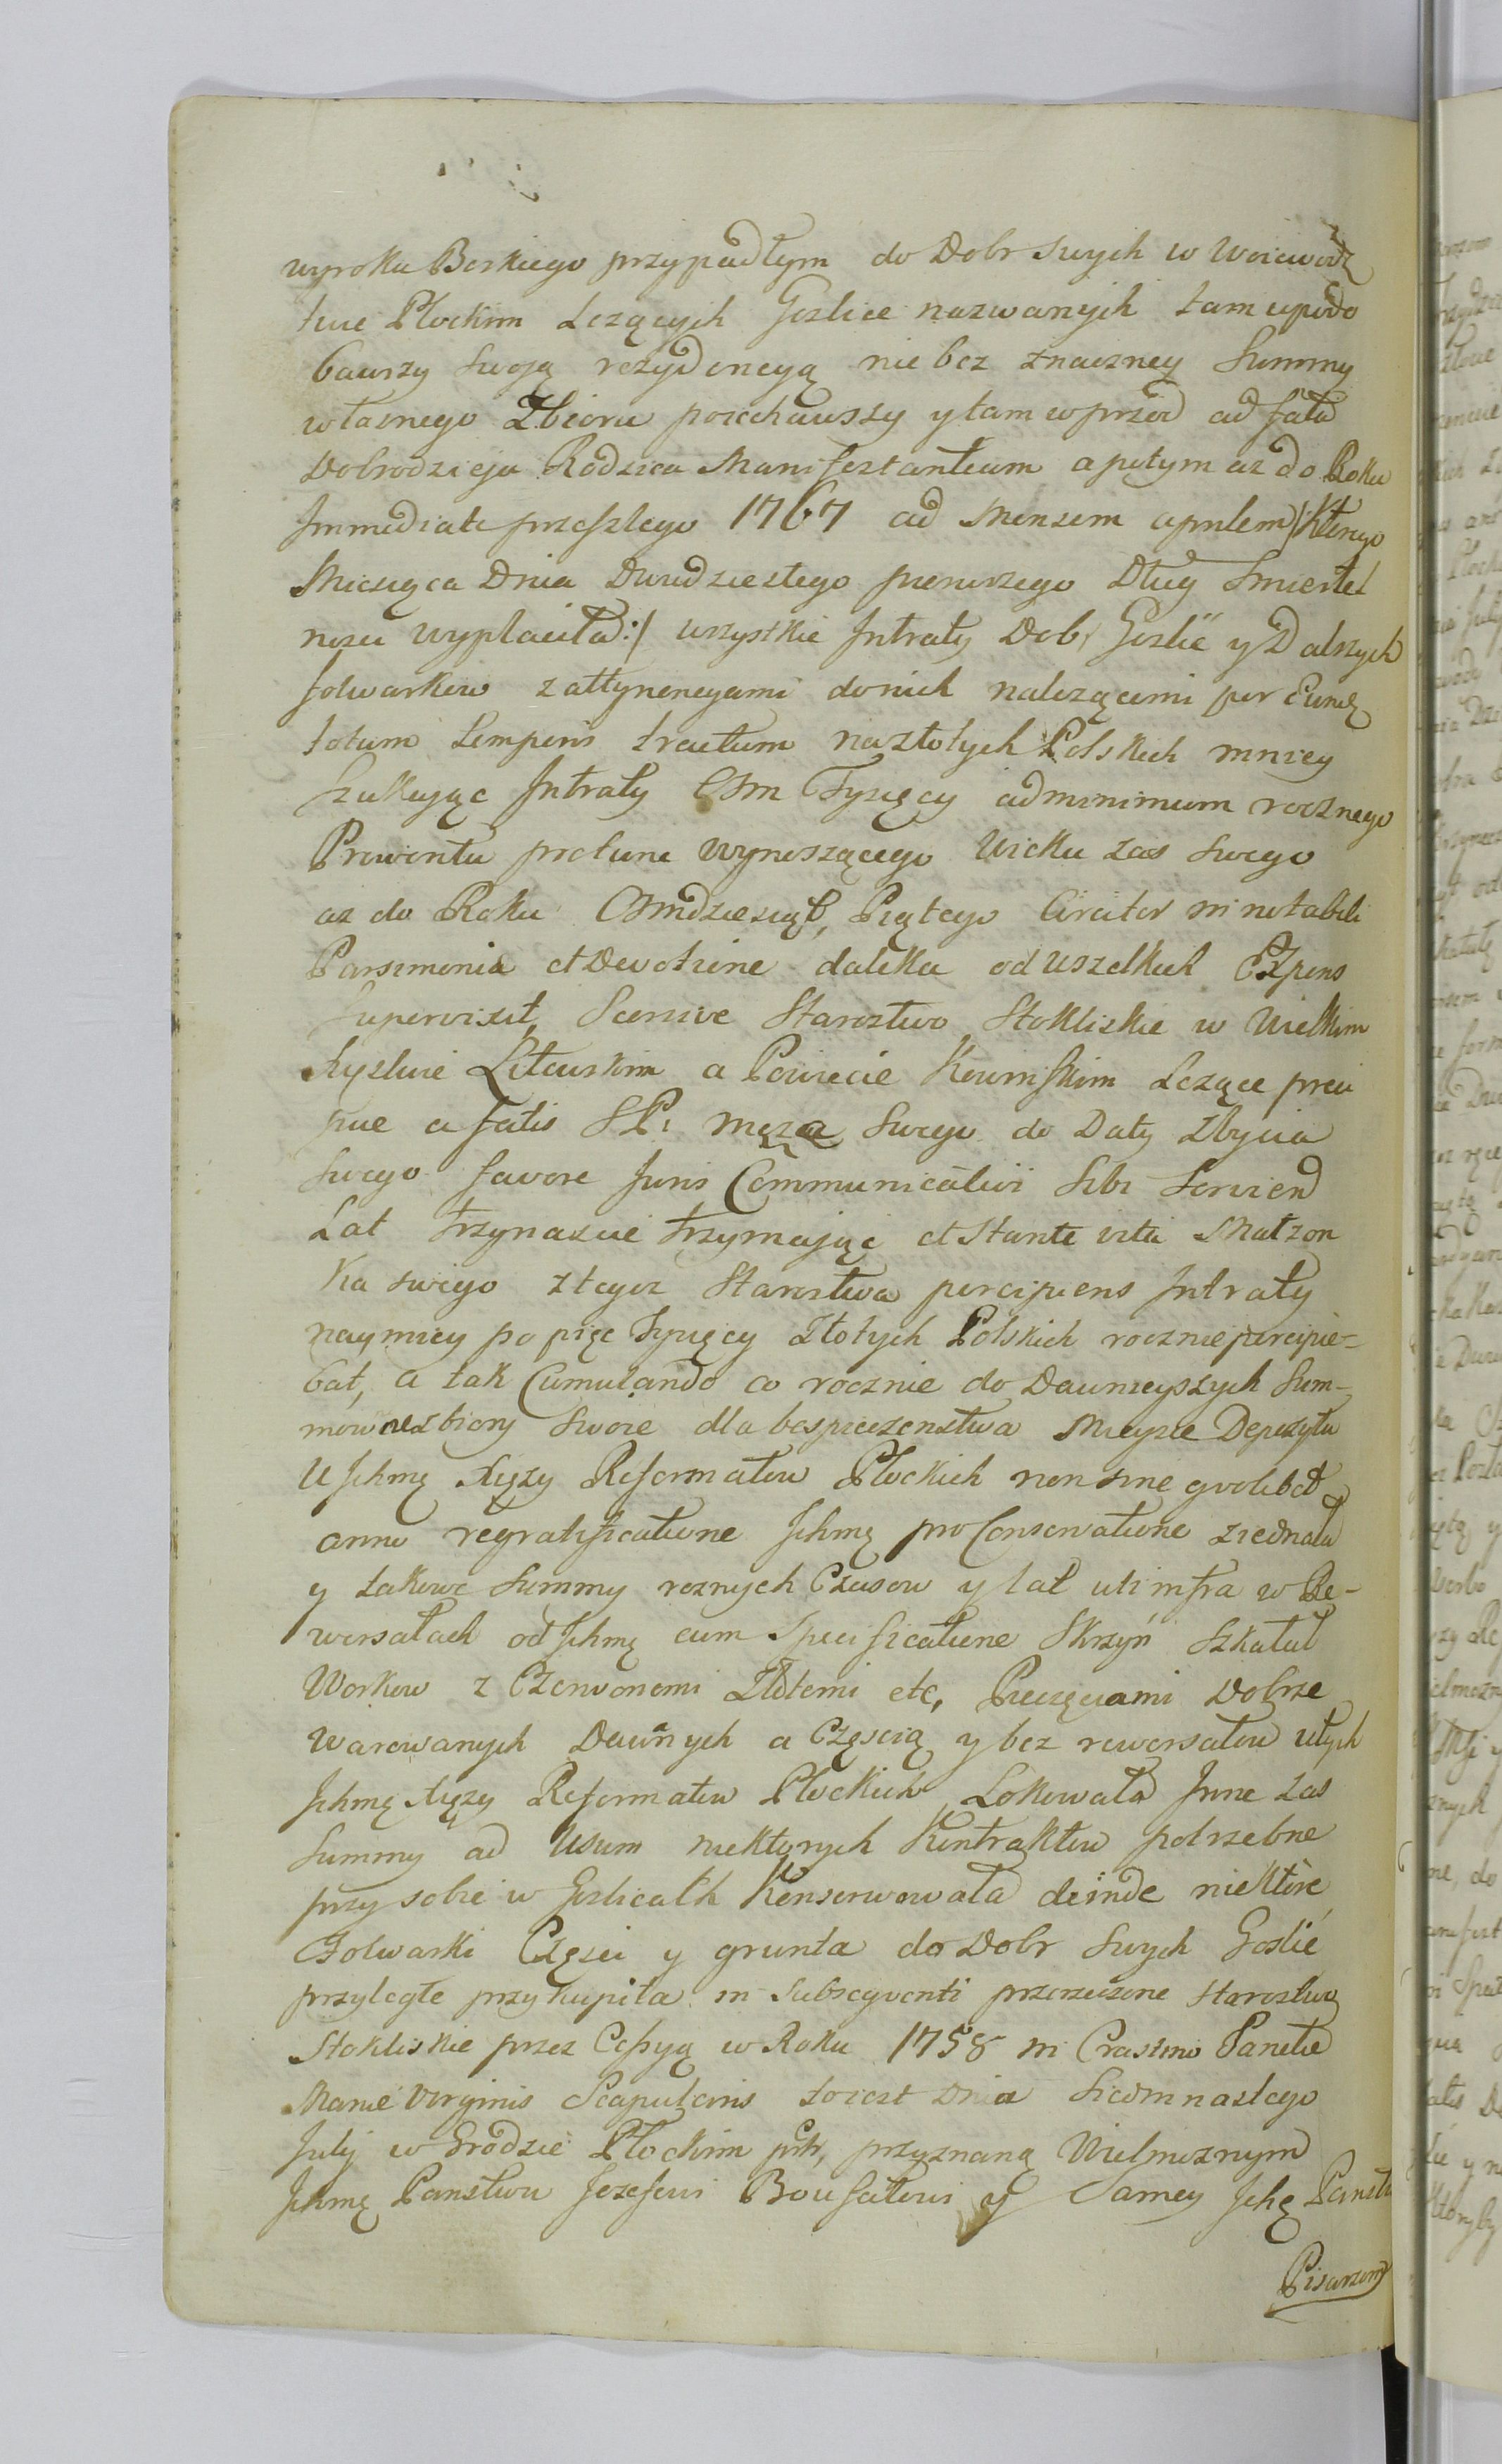 wyroku Boskiego przypadłym do Dobr swych w Woiewodz
twie Płockim Lezących Gozlice nazwanych tam upodo
bawszy swoją rezydencyą nie bez znaczney Summy
własnego Zbioru poiechawszy y tam wprzod ad fata
Dobrodzieja Rodzica Manifestantium a potym az do Roku
Immediate przeszłego 1767 ad Mensem aprilem /: Ktorego
Miesiąca Dnia Dwudziestego pierwszego Dług Smiertel
nosci wypłaciła :/ wszystkie Intraty Dobr Gozlic y Dalszych
folwarkow z attynencyami do nich nalezącemi per Eund
totum temporis tractum na złotych Polskich mniey
szukając Intraty Osm Tysięcy ad minimum rocznego
Prowentu pro tunc wynoszącego Wieku zas swego
az do Roku Osmdziesiąt Piątego Circiter in notabili
Parsimonia et Devotione daleka od wszelkich Expens
Supervixit Scersive Starostwo Stokliskie w Wielkim
Xięstwie Litewskim a Powiecie Kowinskim Lezące preci
pue a fatis S P: męza swego do Daty Zbycia
swego favore Juris Communicativi Sibi Servien
Lat trzynascie trzymając et Stante vita Małzon
ka swego z tegoz Starostwa percipiens Intraty
naymiey po pięc Tysięcy Złotych Polskich rocznie percipie-
bat, a tak Cumulando co rocznie do Dawnieyszych Sum-
mow zbiory Swoie dla bespieczenstwa Mieysce Depozytu
U Jchmę Xięzy Reformatow Płockich non sine quolibet
anno regratificatione Jchmę pro Conservatione ziednała
y takowe Summy roznych Czasow y lat uti infra w Re-
wersałach od Jchmę cum Specificatione Skrzyń Szkatuł
Workow z Czerwonemi Złotemi etc, Pieczęciami Dobrze
Warowanych Dawnych a Częscią y bez rewersałow u tych
Jchmę Xięzy Reformatow Płockich Lokowała Inne zas
Summy ad Usum niektorych Kontraktow potrzebne
przy sobie w Gozlicach Konserwowała deinde niektóre
Folwarki Częsci y grunta do Dobr Swych Goslic
przyległe przykupiła in Subsequenti przerzeczone Starostwo
Stokliskie przez Cessyą w Roku 1758 in Crastino
Mariæ Virginis Scapularis to iest Dnia Siedmnastego
Julij w Grodzie Płockim przyznaną Wielmoznym
Jchmę Panstwu Jozefowi Bouffałowi y Samey Jchę Panstw
Pisarzom